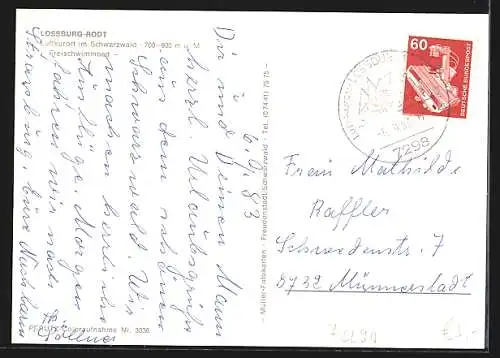 LOSSBURG-RODT
Luftkurort im Schwarzwald · 700-800 m ü. M.
Freischwimmbad
6.9.83
Dir und Deinen Mann
herzl. Urlaubsgrüße
aus dem schönen
Schwarzwald. Wir
machen herrliche
Ausflüge. Morgen
fahren wir nach
Strassburg. Eure Nachbarn
Göllner
PERUTZ-Coloraufnahme Nr. 3036
Müller-Fotokarten · Freudenstadt/Schwarzwald · Tel. (07441) 7575
60
DEUTSCHE BUNDESPOST
7298
Frau Mathilde
Raffler
Schwedenstr. 7
8732 Münnerstadt